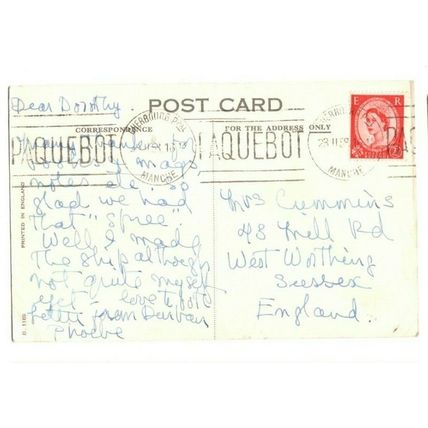 Dear Dorothy.
POST CARD
CORRESPONDENCE
FOR THE ADDRESS ONLY
E R
PAQUEBOT
PAQUEBOT
MANCHE
MANCHE
notes etc. so
glad we had
that "spree"
Well I made
the ship although
not quite myself
yet. love to
letter from Durban
Phoebe
Mrs Cummins
43 Mill Rd
West Worthing
Sussex
England
PRINTED IN ENGLAND